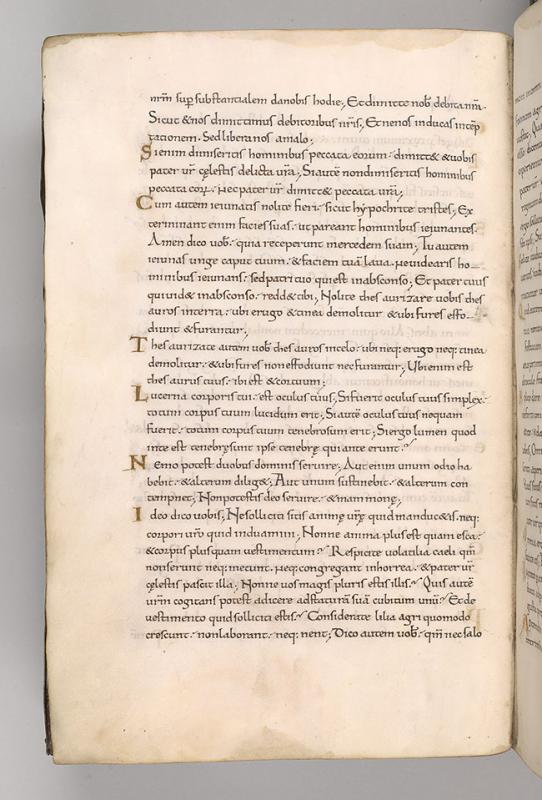 nr̄m sup̄ substantialem danobis hodie; Et dimitte nob̄ debita nr̄a.
Sicut &nos dimittimus debitoribus nr̄is; Et nenos inducas intēp
tationem. Sed libera nos amalo;
Si enim dimiseritis hominibus peccata eorum. dimitt& &uobis
pater ur̄ cęlestis delicta ur̄a; Si autē nondimiseritis hominibus
peccata eoꝝ. nec pater ur̄ dimitt& peccata ur̄a;
Cum autem ieiunatis nolite fieri sicut hypochrite tristes; Ex
terminant enim facies suas. ut pareant hominibus ieiunantes.
Amen dico uob̄. quia receperunt mercedem suam; Tu autem
ieiunas unge caput tuum. &faciem tuā laua. neuidearis ho
minibus ieiunans. sed patri tuo qui est inabsconso; Et pater tuus
qui uid& inabsconso. redd& tibi; Nolite thesaurizare uobis thes
auros interra. ubi erugo &tinea demolitur &ubi fures effo
diunt &furantur;
Thesaurizate autem uob̄ thesauros incelo. ubi neq: erugo neq: tinea
demolitur. &ubi fures non effodiunt nec furantur; Ubi enim est
thesaurus tuus. ibi est &cor tuum;
Lucerna corporis tui. est oculus tuus; Si fuerit oculus tuus simplex.
totum corpus tuum lucidum erit; Si autē oculus tuus nequam
fuerit. totum corpus tuum tenebrosum erit; Si ergo lumen quod
inte est tenebrę sunt ipse tenebrę quante erunt?
Nemo potest duobus dominis seruire; Aut enim unum odio ha
bebit. &alterum dilig&; Aut unum sustinebit. &alterum con
tempnet; Non potestis deo seruire. &mammonę;
Ideo dico uobis; Ne solliciti sitis animę ur̄ę quid manduc&is. neq:
corpori ur̄o quid induamini; Nonne anima plus est quam esca.
&corpus plus quam uestimentum? Respicite uolatilia caeli qm̄
non serunt neq: metunt. neq: congregant inhorrea. &pater ur̄
cęlestis pascit illa; Nonne uos magis pluris estis illis? Quis autē
ur̄m cogitans potest adicere adstaturā suā cubitum unū? Et de
uestimento quid solliciti estis? Considerate lilia agri quomodo
crescunt. non laborant. neq: nent; Dico autem uob̄. qm̄ nec salo